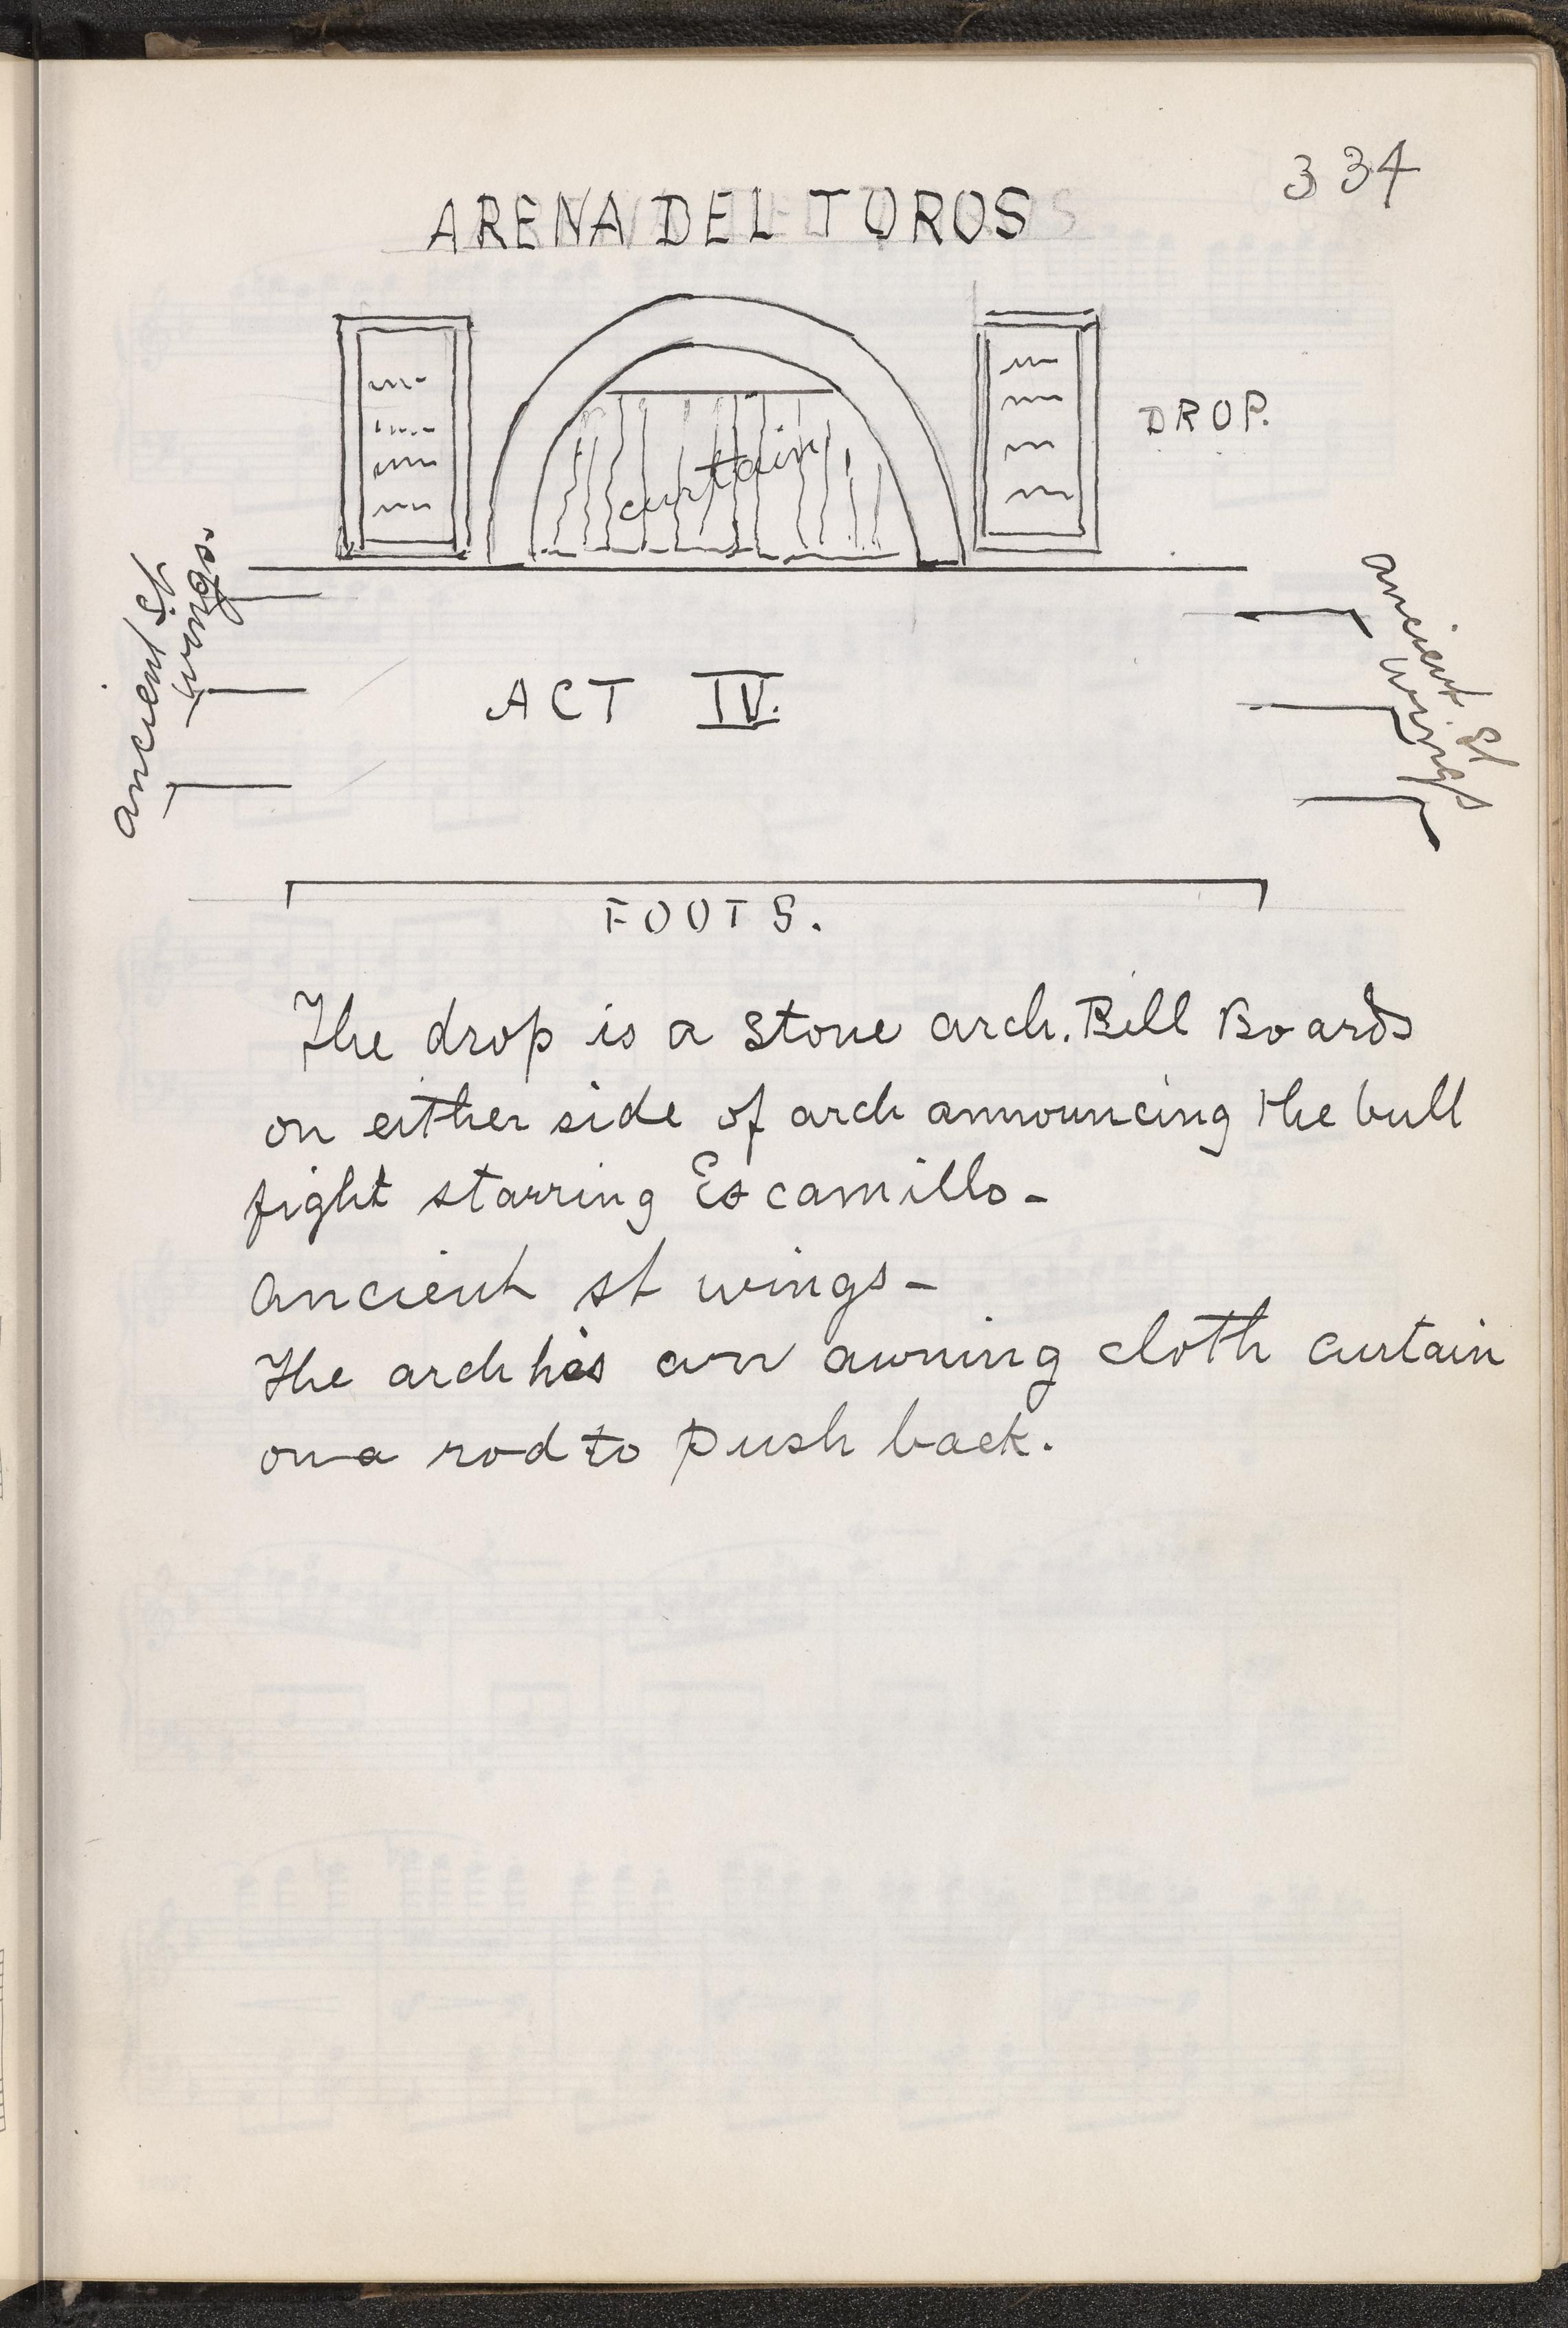 334
ARENA DEL TOROS
DROP.
curtain
ancient st
wings.
ancient st
wings
ACT IV.
FOOTS.
The drop is a stone arch. Bill Boards
on either side of arch announcing the bull
fight starring Escamillo-
ancient st wings-
The arch has an awning cloth curtain
on a rod to push back.